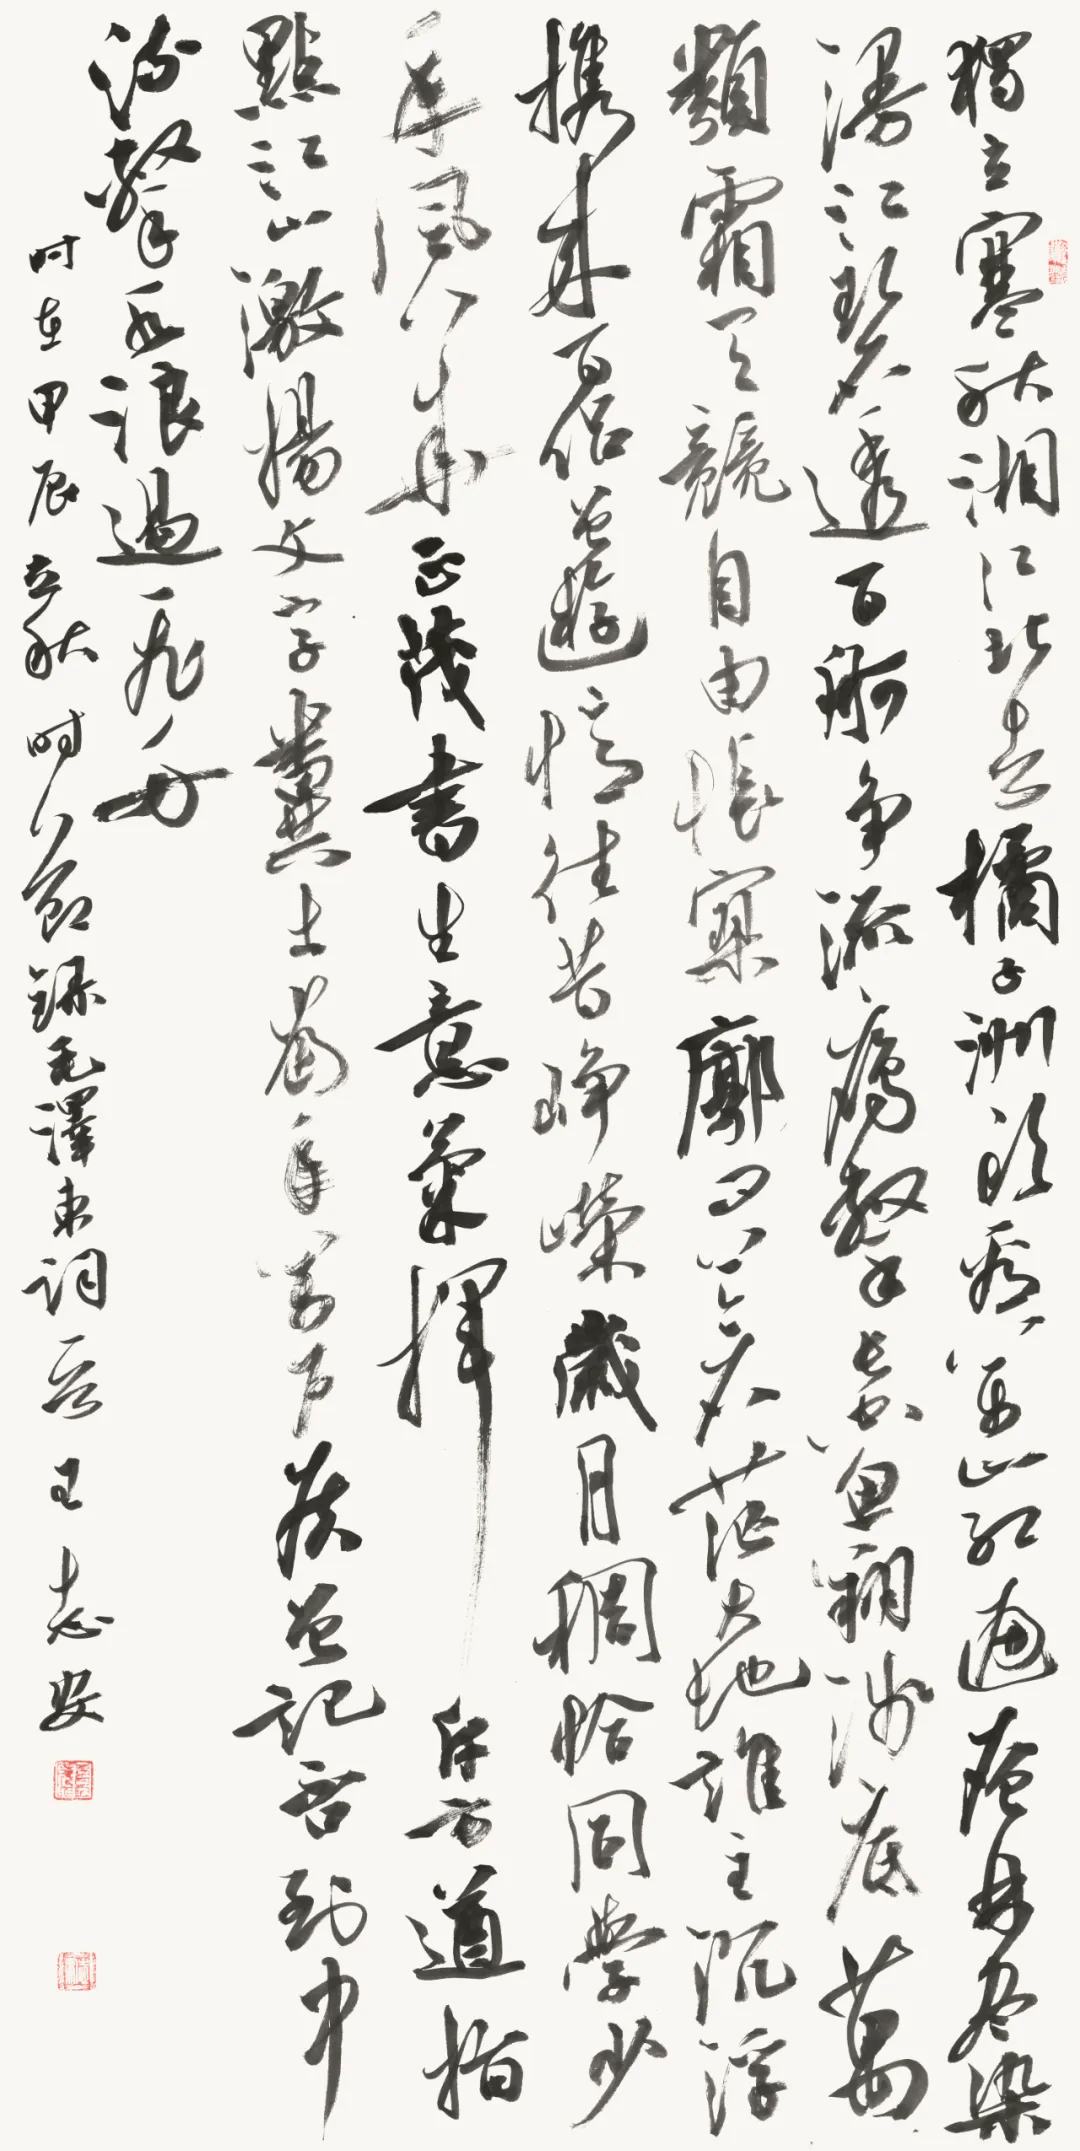 獨立寒秋湘江北去橘子洲頭看萬山紅遍層林盡染
漫江碧透百舸爭流鷹擊長空魚翔淺底萬
類霜天競自由悵寥廓問蒼茫大地誰主沉浮
携來百侣曾遊憶往昔崢嶸歲月稠恰同學少
年風華正茂書生意氣揮斥方遒指
點江山激揚文字糞土當年萬户侯曾記否到中
流擊水浪遏飛舟
時在甲辰立秋時節録毛澤東詞一首王志安